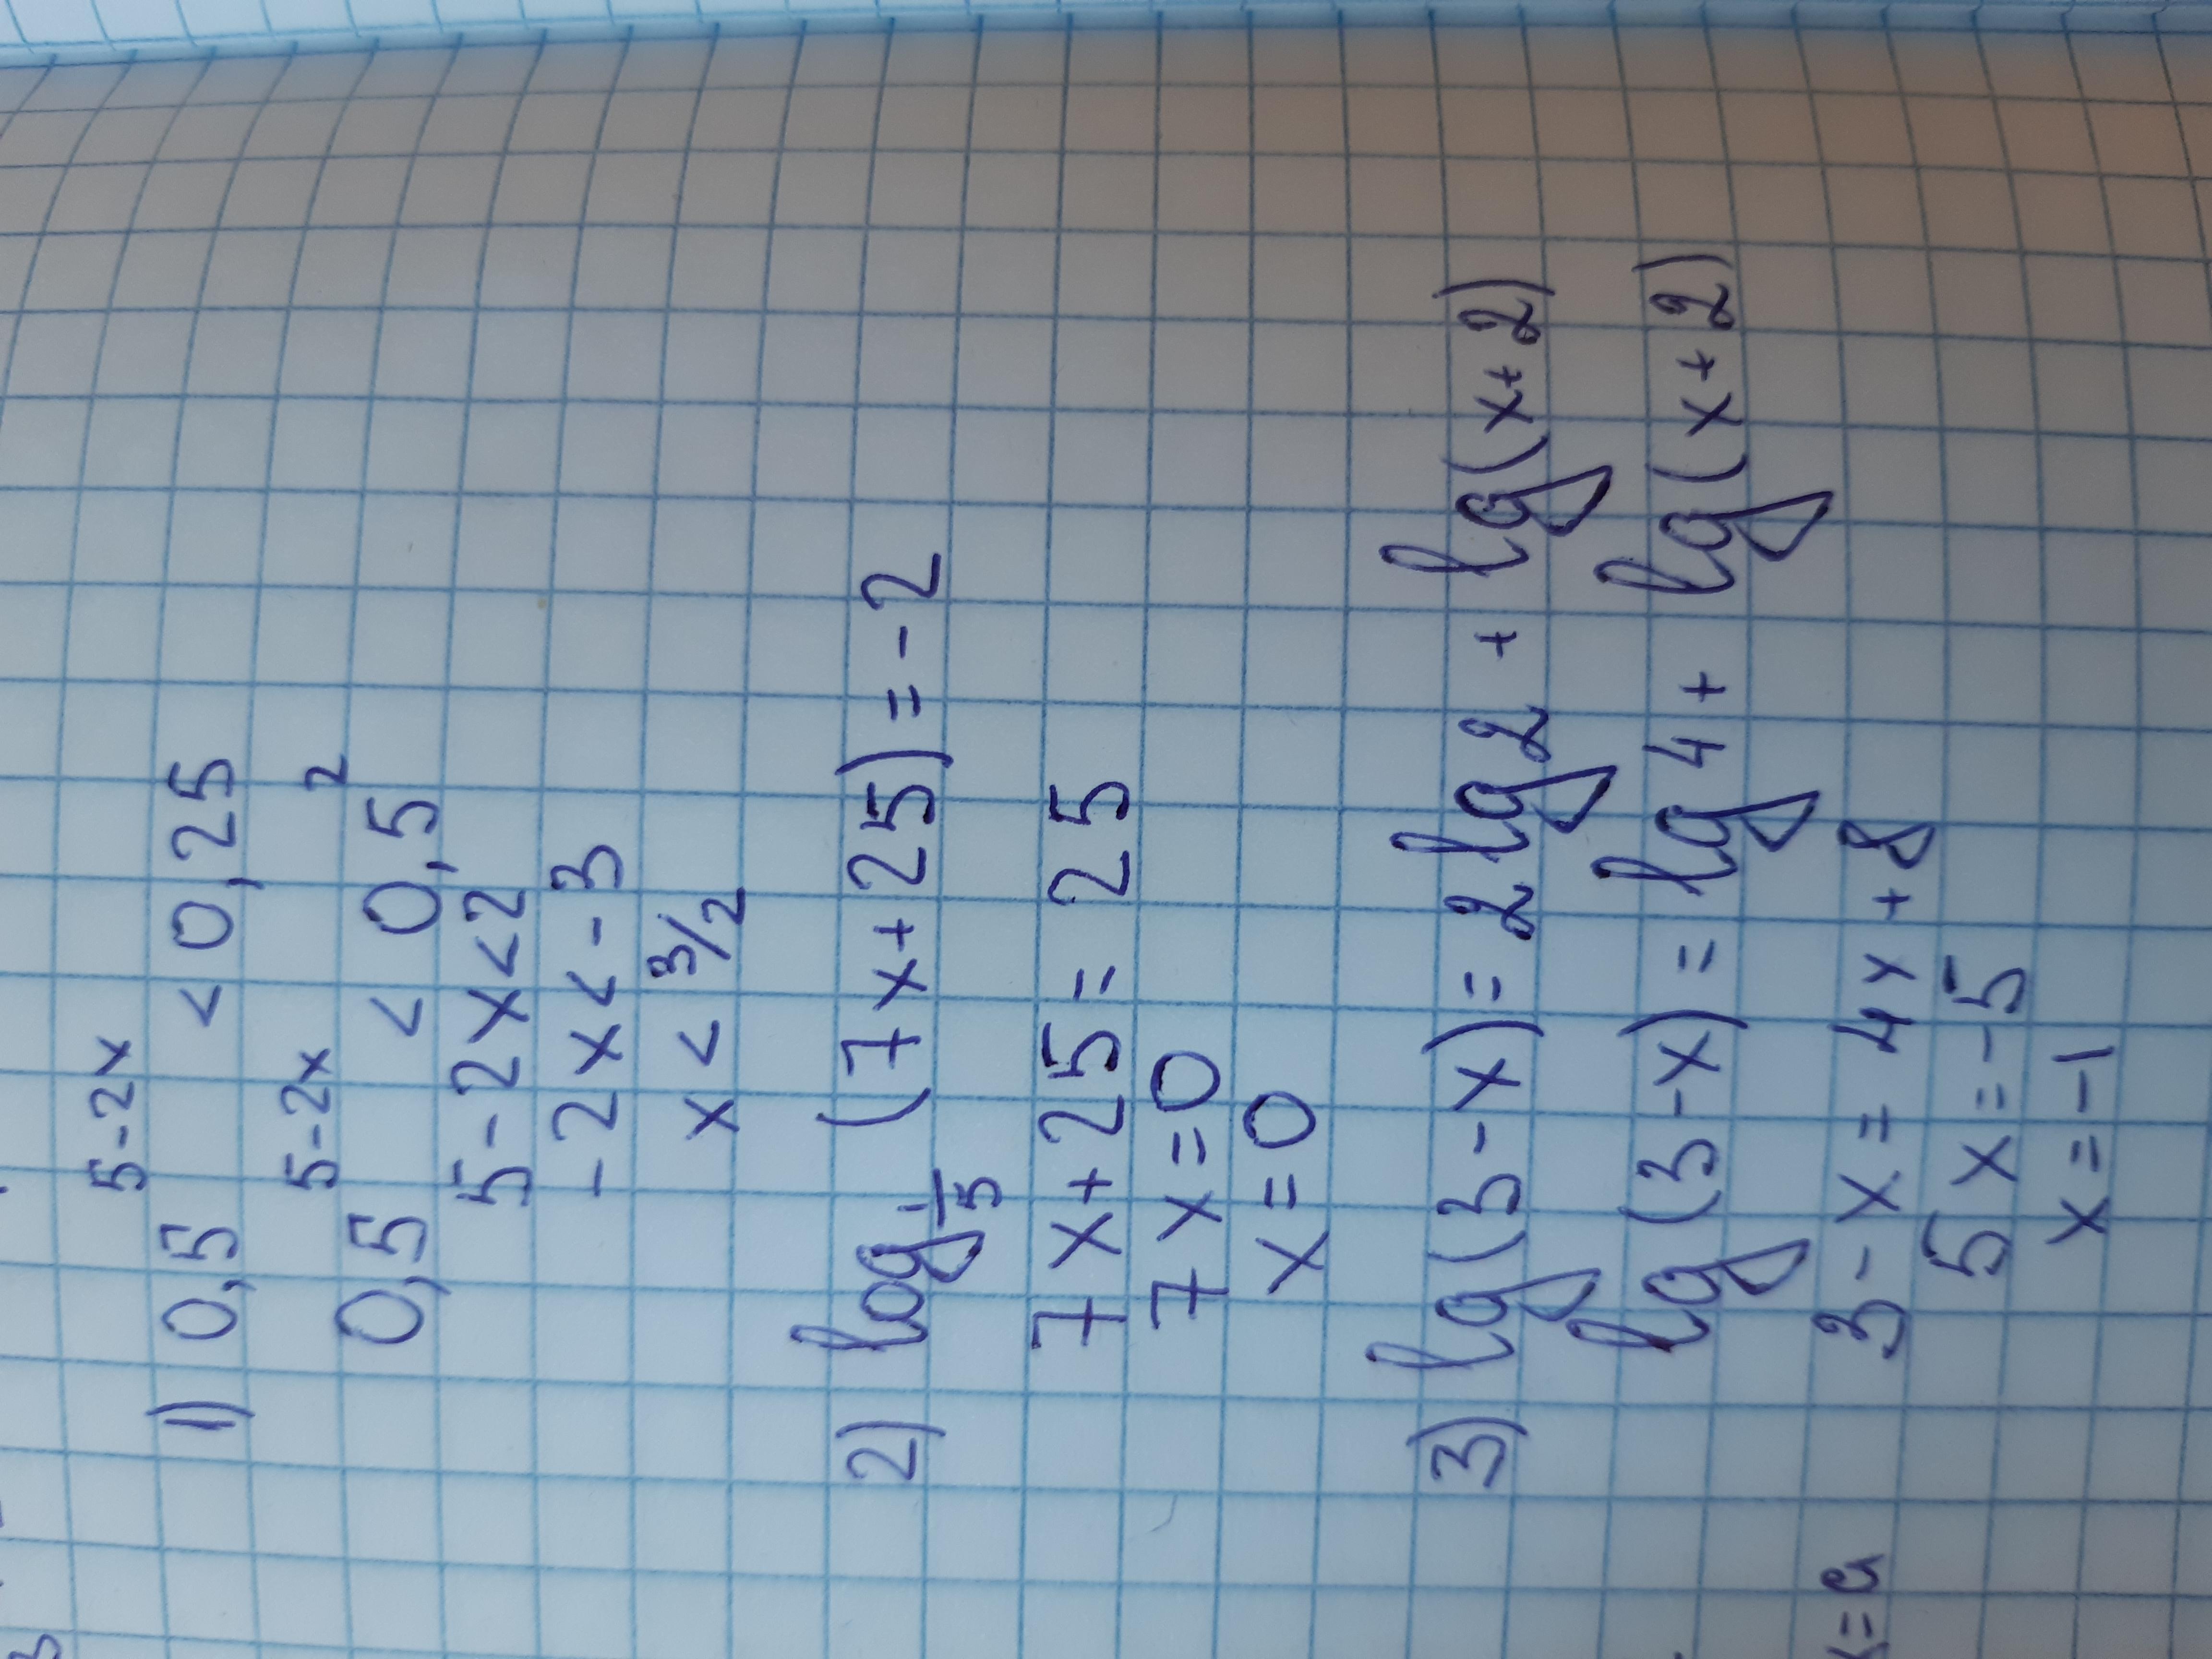 1) 0,5^5-2x < 0,25
0,5^5-2x < 0,5^2
5-2x<2
-2x<-3
x<3/2
2) log 1/5 (7x+25)=-2
7x+25=25
7x=0
x=0
3) lg(3-x)=2lg2+lg(x+2)
lg(3-x)=lg4+lg(x+2)
3-x=4x+8
5x=-5
x=-1